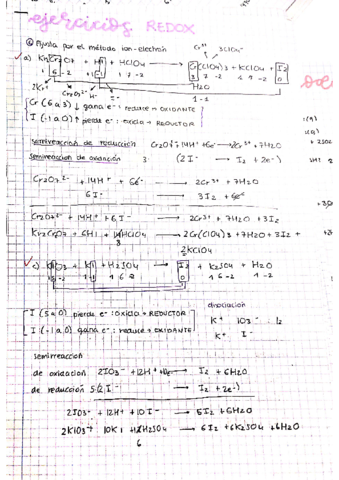 ejercicios REDOX
⑥ Ajusta por el método ion-electrón
Cr³⁺ 3ClO₄⁻
a) K₂Cr₂O₇ + HI + HClO₄ → Cr(ClO₄)₃ + KClO₄ + I₂
+1 6 -2 +1 -1 1 7 -2 3 7 -2 1 7 -2 0
H₂O
2K⁺ Cr₂O₇²⁻ H⁺ I⁻ 1 -2
Cr (6 a 3) ↓ gana e⁻: reduce → OXIDANTE
I (-1 a 0) ↑ pierde e⁻: oxida → REDUCTOR
semirreacción de reducción Cr₂O₇²⁻ + 14H⁺ + 6e⁻ → 2Cr³⁺ + 7H₂O
semirreacción de oxidación 3 (2I⁻ → I₂ + 2e⁻)
Cr₂O₇²⁻ + 14H⁺ + 6e⁻ → 2Cr³⁺ + 7H₂O
6I⁻ → 3I₂ + 6e⁻
Cr₂O₇²⁻ + 14H⁺ + 6I⁻ → 2Cr³⁺ + 7H₂O + 3I₂
K₂Cr₂O₇ + 6HI + 14HClO₄ → 2Cr(ClO₄)₃ + 7H₂O + 3I₂ +
8 2KClO₄
c) KIO₃ + KI + H₂SO₄ → I₂ + K₂SO₄ + H₂O
1 5 -2 1 -1 1 6 -2 0 1 6 -2 1 -2
I (5 a 0) pierde e⁻: OXIDA → REDUCTOR
I (-1 a 0) gana e⁻: reduce → OXIDANTE
disociación
K⁺ IO₃⁻ I₂
K⁺ I⁻
semirreacción
de oxidación 2IO₃⁻ + 12H⁺ + 10e⁻ → I₂ + 6H₂O
de reducción 5(2I⁻ → I₂ + 2e⁻)
2IO₃⁻ + 12H⁺ + 10I⁻ → 5I₂ + 6H₂O
2KIO₃ + 10KI + 12H₂SO₄ → 6I₂ + 6K₂SO₄ + 6H₂O
6